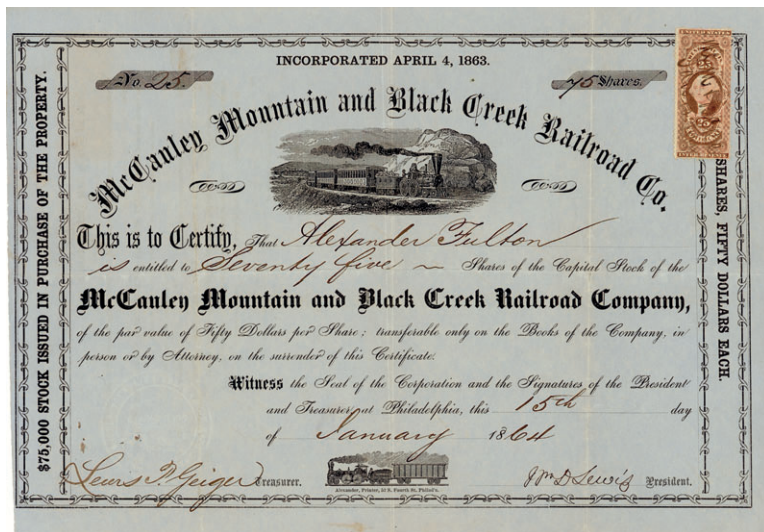 INCORPORATED APRIL 4, 1863.
No. 25.
75 Shares.
McCauley Mountain and Black Creek Railroad Co.
This is to Certify, That Alexander Fulton
is entitled to Seventy five ~ Shares of the Capital Stock of the
McCauley Mountain and Black Creek Railroad Company,
of the par value of Fifty Dollars per Share; transferable only on the Books of the Company, in
person or by Attorney, on the surrender of this Certificate.
Witness the Seal of the Corporation and the Signatures of the President
and Treasurer, at Philadelphia, this 15th day
of January 1864
Lewis P. Geiger Treasurer.
Wm D Lewis President.
Alexander, Printer, 52 S. Fourth St. Philad'a.
$75,000 STOCK ISSUED IN PURCHASE OF THE PROPERTY.
SHARES, FIFTY DOLLARS EACH.